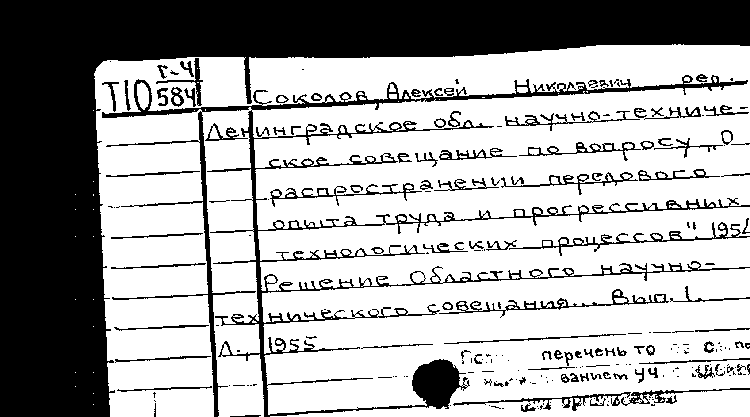 Т10 Г-4
584
Соколов, Алексей Николаевич ред.
Ленинградское обл. научно-техниче-
ское совещание по вопросу „О
распространении передового
опыта труда и прогрессивных
технологических процессов". 1954
Решение Областного научно-
технического совещания... Вып. 1.
Л., 1955.
перечень то